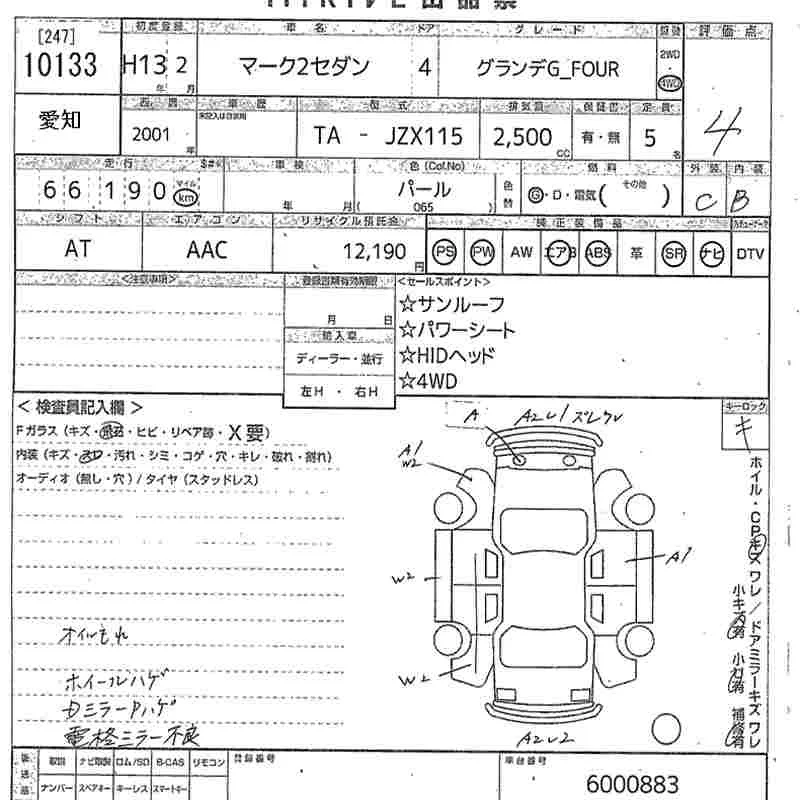 [247]
10133
初度登録
車名
ドア
グレード
駆動
評価点
H13 2
年 月
マーク2セダン
4
グランデG_FOUR
2WD
・
4WD
4
愛知
西暦
車歴
型式
排気量
保証書
定員
未記入は自家用
2001 年
TA - JZX115
2,500 cc
有・無
5 名
走行
車検
色(Col.No)
燃料
外装
内装
66190
マイル
km
年 月
パール
( 065 )
色替
G・D・電気( その他 )
C
B
シフト
エアコン
リサイクル預託金
純正装備品
AT
AAC
12,190 円
PS
PW
AW
エアB
ABS
革
SR
ナビ
DTV
<注意事項>
登録書類有効期限
<セールスポイント>
月 日
☆サンルーフ
輸入車
☆パワーシート
ディーラー・並行
☆HIDヘッド
左H ・ 右H
☆4WD
<検査員記入欄>
キーロック
キ
Fガラス(キズ・飛石・ヒビ・リペア跡・X要)
内装(キズ・スレ・汚れ・シミ・コゲ・穴・キレ・破れ・割れ)
オーディオ(無し・穴)/タイヤ(スタッドレス)
A
A2レ1 ズレクレ
A1
W2
A1
W2
W2
A2レ2
ホイル・CPキズワレ/ドアミラーキズワレ
小キズ有 小ガリ有 補修有
オイルもれ
ホイールハゲ
Dミラーハゲ
電格ミラー不良
後送品
取説
ナビ取説
ロム/SD
B-CAS
リモコン
登録番号
車台番号
ナンバー
スペアキー
キーレス
スマートキー
6000883